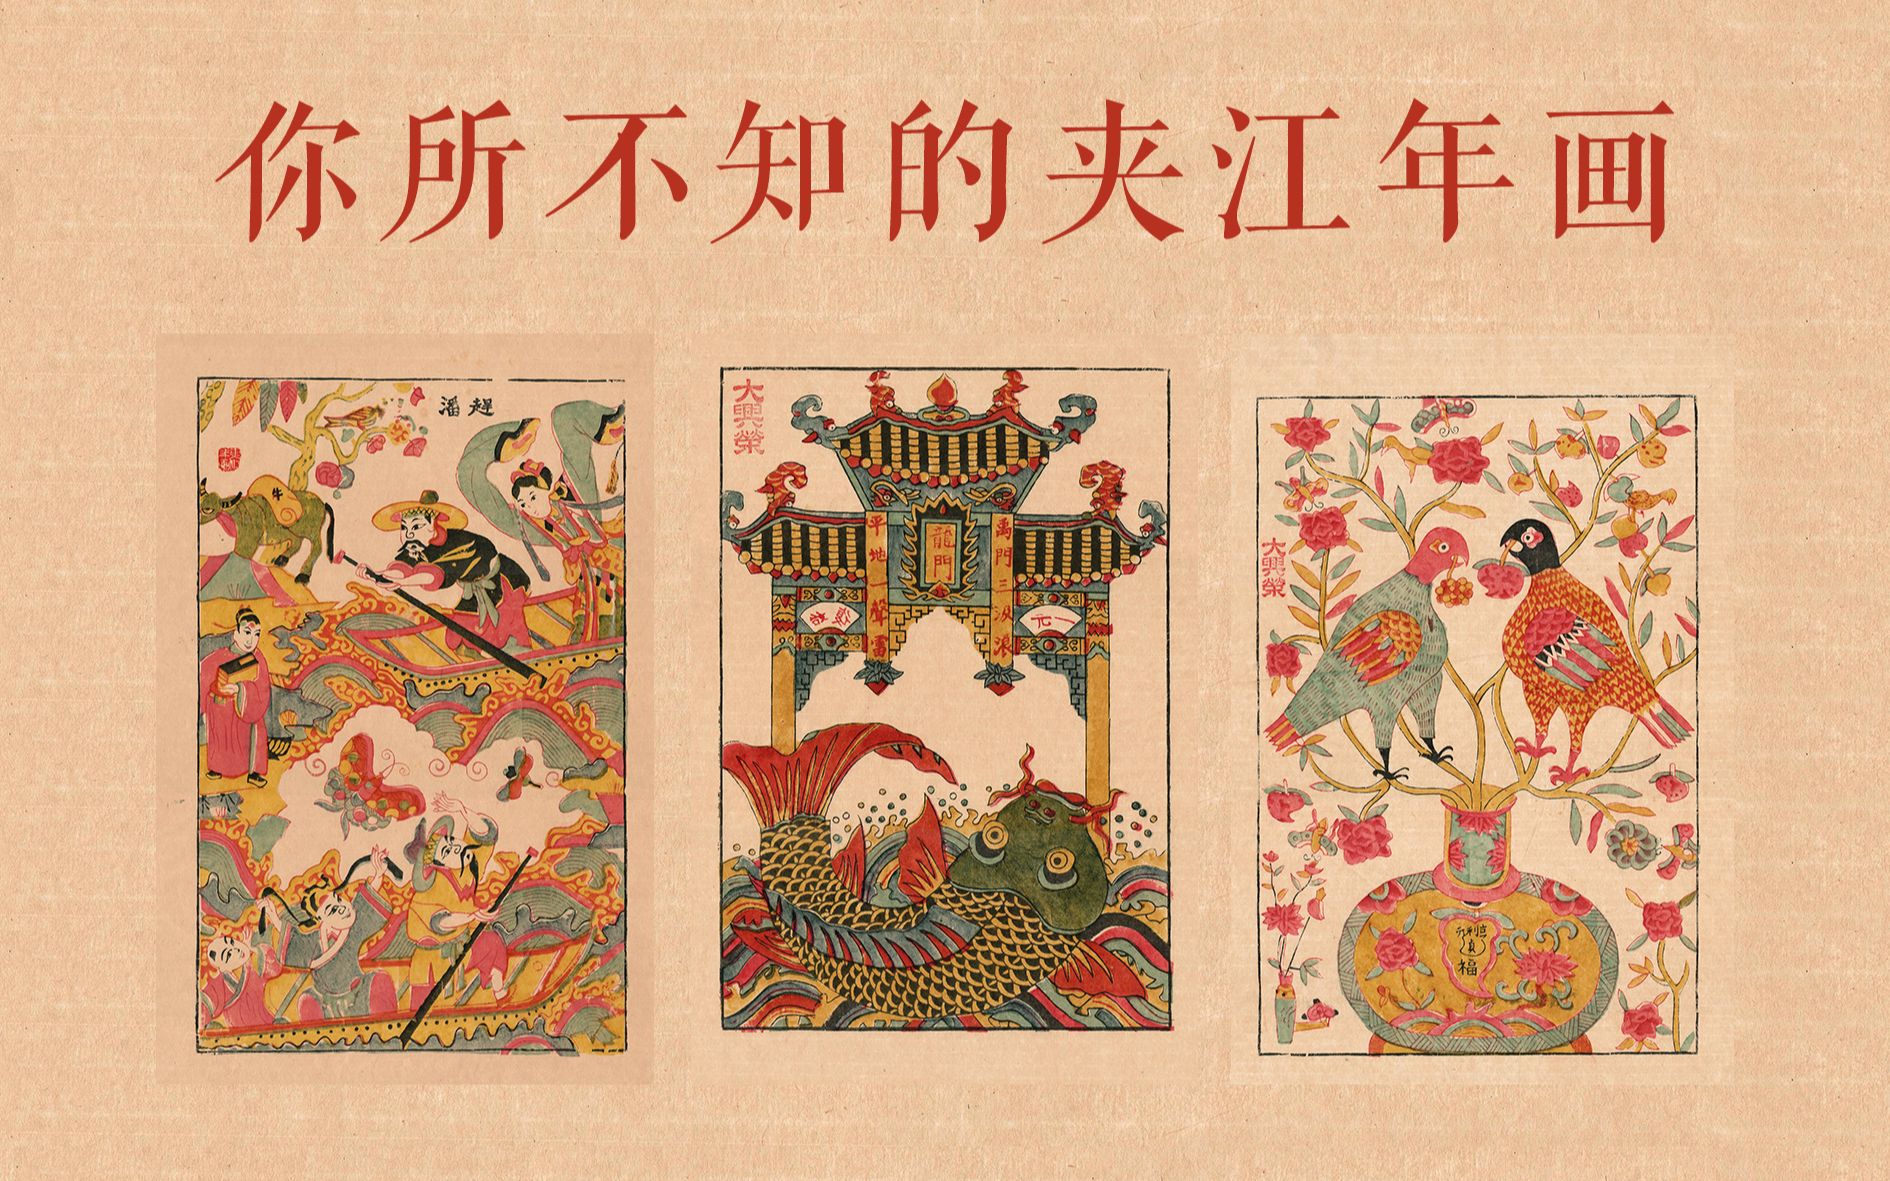 你所不知的夹江年画
趕潘
牛
大興榮
龍門
禹門三汲浪
平地一聲雷
一元
復始
大興榮
福